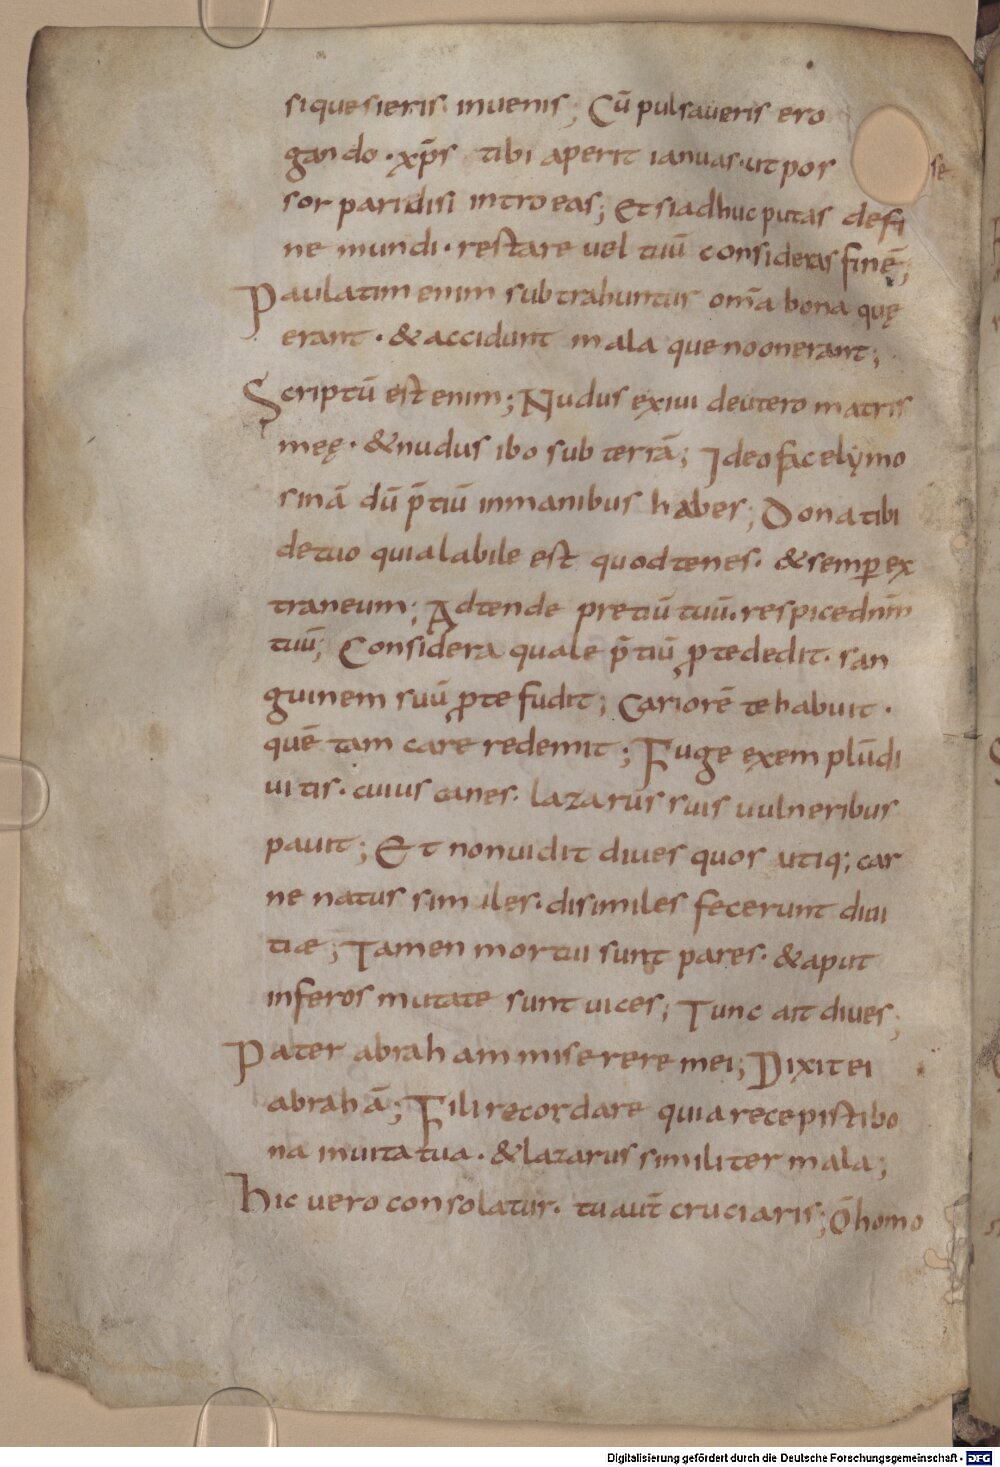 si quesieris invenis; Cū pulsaveris ero
gando · xp̄s tibi aperit ianuas · ut pos se
sor paridisi introeas; Et si adhuc putas de fi
ne mundi · restare vel tuū consideras finē;
Paulatim enim subtrahuntur om̄a bona quę
erant · & accidunt mala que no onerant;
Scriptū est enim; Nudus exivi deutero matris
meę · & nudus ibo sub terrā; Ideo fac elymo
sinā dū p̄tiū in manibus habes; Dona tibi
de tuo quia labile est quod tenes · & semp̱ ex
traneum; Adtende pretiū tuū · respice dnm̄
tuū; Considera quale p̄tiū ꝓ te dedit · san
guinem suū ꝓ te fudit; Cariorē te habuit ·
quē tam care redemit; Fuge exemplū di
vitis · cuius canes · lazarus suis vulneribus
pavit; Et non vidit dives quos utiq; car
ne natus similes · disimiles fecerunt divi
tiæ; Tamen mortui sunt pares · & aput
inferos mutate sunt vices; Tunc ait dives;
Pater abraham miserere mei; Dixit ei
abrahā; Fili recordare quia recepisti bo
na in vita tua · & lazarus similiter mala;
hic vero consolatur · tu aut̄ cruciaris; Ō homo
Digitalisierung gefördert durch die Deutsche Forschungsgemeinschaft - DFG